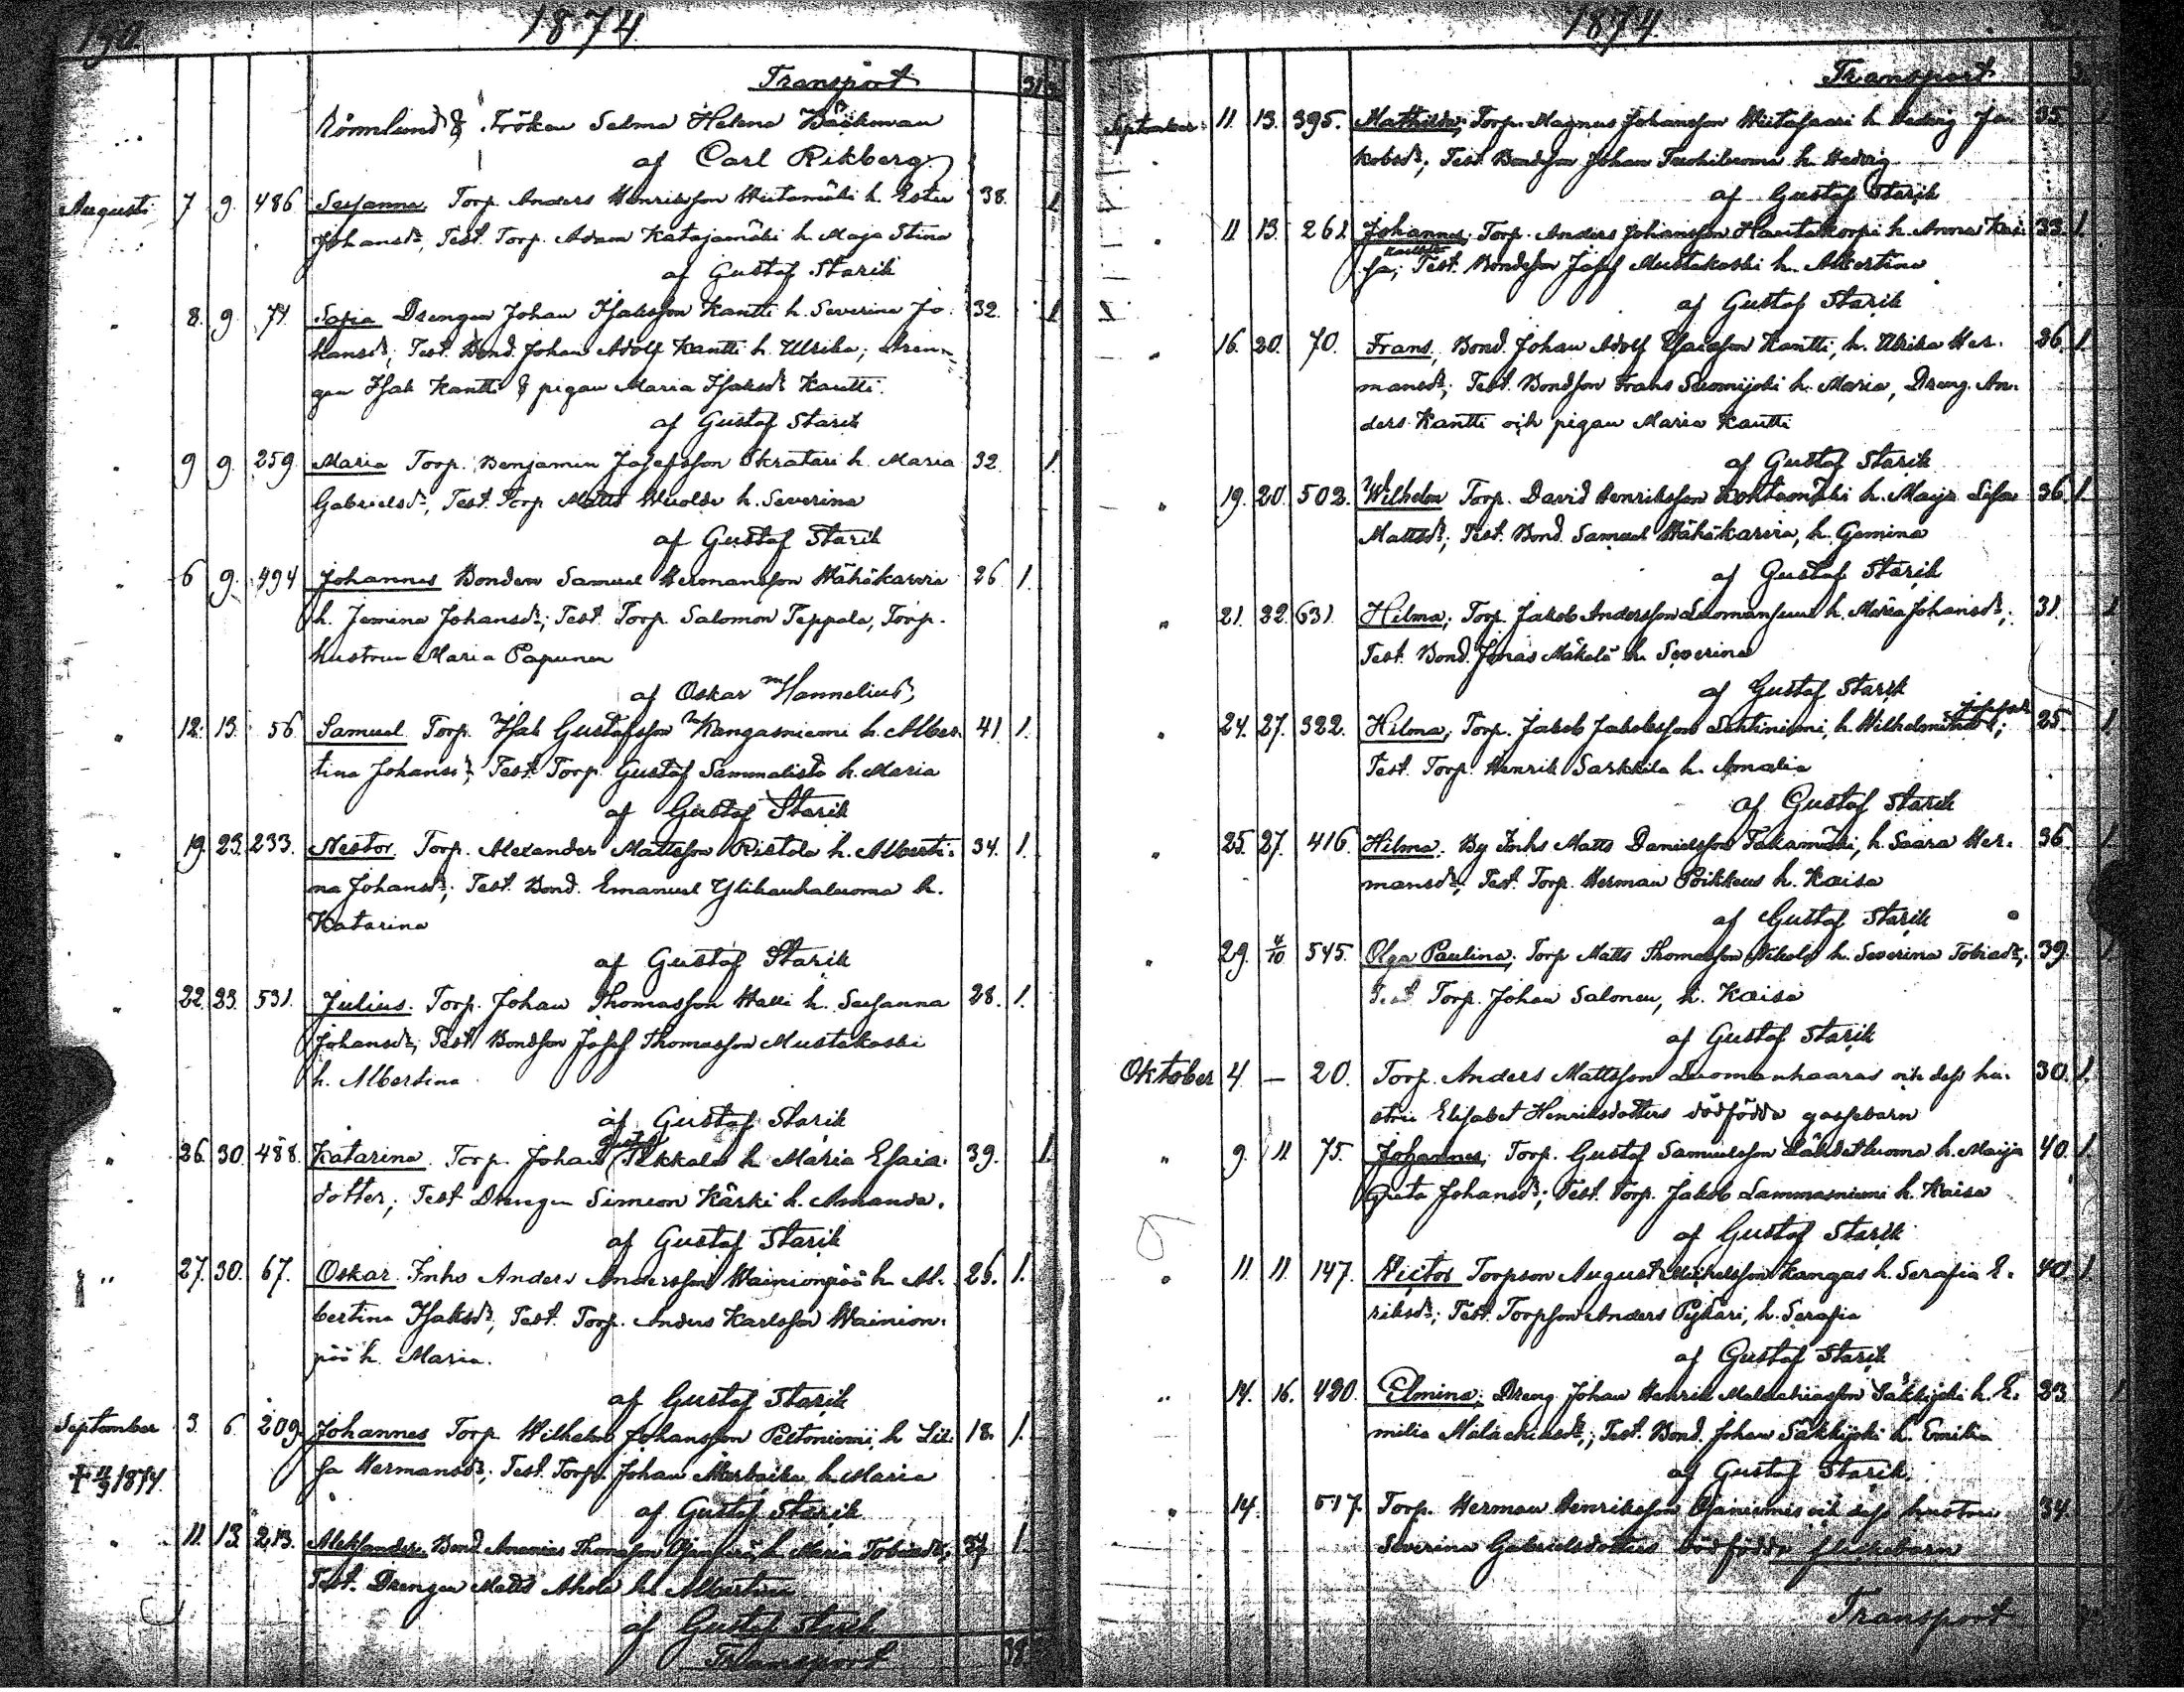 190.
1874
Transport 31
Rönnlund & Fröken Selma Helena Bäckman
af Carl Rikberg.
Augusti 7 9. 486 Susanna Torp. Anders Henriksson Wiitamäki h. Ester 38. 1
Johansdr, Test. Torp. Adam Katajamäki h. Maja Stina
af Gustaf Starik
" 8. 9. 74 Sofia Drengen Johan Isaksson Kantti h. Severina Jo- 32. 1
hansdr; Test. Bond. Johan Adolf Kantti h. Ulrika; dren-
gen Isak Kantti & pigan Maria Isaksdr Kantti.
af Gustaf Starik
" 9 9. 259 Maria Torp. Benjamin Josefsson Skratari h. Maria 32. 1
Gabrielsdr, Test. Torp Matts h. Severina
af Gustaf Starik
" 6 9. 494 Johannes Bonden Samuel Hermansson Wähäkarvia 26 1.
h. Jemina Johansdr; Test. Torp. Salomon Teppala, Torp.
hustrun Maria Papunen
af Oskar Hannelius
" 12. 13. 56 Samuel Torp. Isak Gustafsson Kangasniemi h. Alber- 41 1.
tina Johansdr, Test. Torp. Gustaf Sammalisto h. Maria
af Gustaf Starik
" 19. 23. 233. Nestor. Torp. Alexander Mattsson Ristola h. Alberti- 34. 1.
na Johansdr; Test. Bond. Emanuel Ylikauhaluoma h.
Katarina
af Gustaf Starik
" 22. 23. 531. Julius. Torp. Johan Thomasson Halli h. Susanna 28. 1.
Johansdr, Test Bondson Josef Thomasson Mustakoski
h. Albertina
af Gustaf Starik
Gustaf
" 26. 30. 488. Katarina. Torp. Johan Pekkala h Maria Esaia- 39. 1.
dotter; Test Drengen Simeon Kärki h. Amanda.
af Gustaf Starik
" 27. 30. 67. Oskar. Inhs Anders Andersson Wainionpää h. Al- 26. 1.
bertina Isaksdr, Test. Torp. Anders Karlsson Wainion-
pää h. Maria.
af Gustaf Starik
September 3. 6. 209. Johannes Torp Wilhelm Johansson Peltoniemi, h Lii- 18. 1.
† 11/9 1874. sa Hermansdr; Test. Torp. Johan h. Maria
af Gustaf Starik
" 11. 13. 213. Aleksander. Bond Ananias Thomasson h. Maria Tobiasdr; 1.
Test. Drengen Matts Ahola h. Albertina
af Gustaf Starik
Transport 38
1874.
Transport
September. 11. 13. 395. Mathilda; Torp. Magnus Johansson Wiitasaari h Hedvig Ja- 35.
kobsdr; Test. Bondson Johan h. Hedvig
af Gustaf Starik
" 11 13. 261. Johannes; Torp. Anders Johansson Hautakorpi h. Anna Kai- 33. 1.
sa; Test. Bondson Josef Mustakoski h. Albertina
af Gustaf Starik
" 16. 20. 70. Frans, Bond. Johan Adolf Esaiasson Kantti, h. Ulrika Her- 26. 1.
mansdr; Test. Bondson Frans Suomijoki h. Maria, Dreng. An-
ders Kantti och pigan Maria Kantti
af Gustaf Starik
" 19. 20. 502. Wilhelm Torp. David Henriksson Kohtamäki h. Maija Lisa 36. 1.
Mattsdr; Test. Bond. Samuel Wähäkarvia, h. Gemina
af Gustaf Starik
" 21. 22. 631. Hilma; Torp. Jakob Andersson Luomansuu h. Maria Johansdr; 31. 1
Test. Bond. Jonas Mäkelä h. Severina
af Gustaf Starik
" 24. 27. 322. Hilma; Torp. Jakob Jakobsson Lehtiniemi, h. Wilhelmina 25. 1
Test. Torp. Henrik Sarkkila h. Amalia
af Gustaf Starik
" 25. 27. 416. Hilma. By Inhs Matts Danielsson Takamäki, h. Saara Her- 36. 1
mansdr; Test. Torp. Herman Poikkeus h. Kaisa
af Gustaf Starik
" 29. 4/10 545. Olga Paulina; Torp Matts Thomasson Nikola h. Severina Tobiasdr; 39. 1
Test Torp. Johan Salonen, h. Kaisa
af Gustaf Starik
Oktober 4. — 20. Torp. Anders Mattsson Luomanhaaras och dess hu- 30. 1.
stru Elisabet Henriksdotters dödfödda gossebarn
" 9. 11 75. Johannes; Torp. Gustaf Samuelsson Lähdetluoma h. Maija 40. 1.
Greta Johansdr; Test. Torp. Jakob Lammasniemi h. Kaisa
af Gustaf Starik
" 11. 11. 147. Victor Torpson August Mickelsson Kangas h. Serafia E- 40 1
riksdr; Test. Torpson Anders Pyhäri, h. Serafia
af Gustaf Starik
" 14. 16. 420. Elmina; Dreng Johan Henrik Malakiasson Säkkijoki h. E- 23. 1
milia Malachiasdr,; Test. Bond. Johan Säkkijoki h. Emilia
af Gustaf Starik.
" 14. 517 Torp. Herman Henriksson Ojaniemis och dess hustru 34.
Severina Gabrielsdotters dödfödda flickebarn
Transport